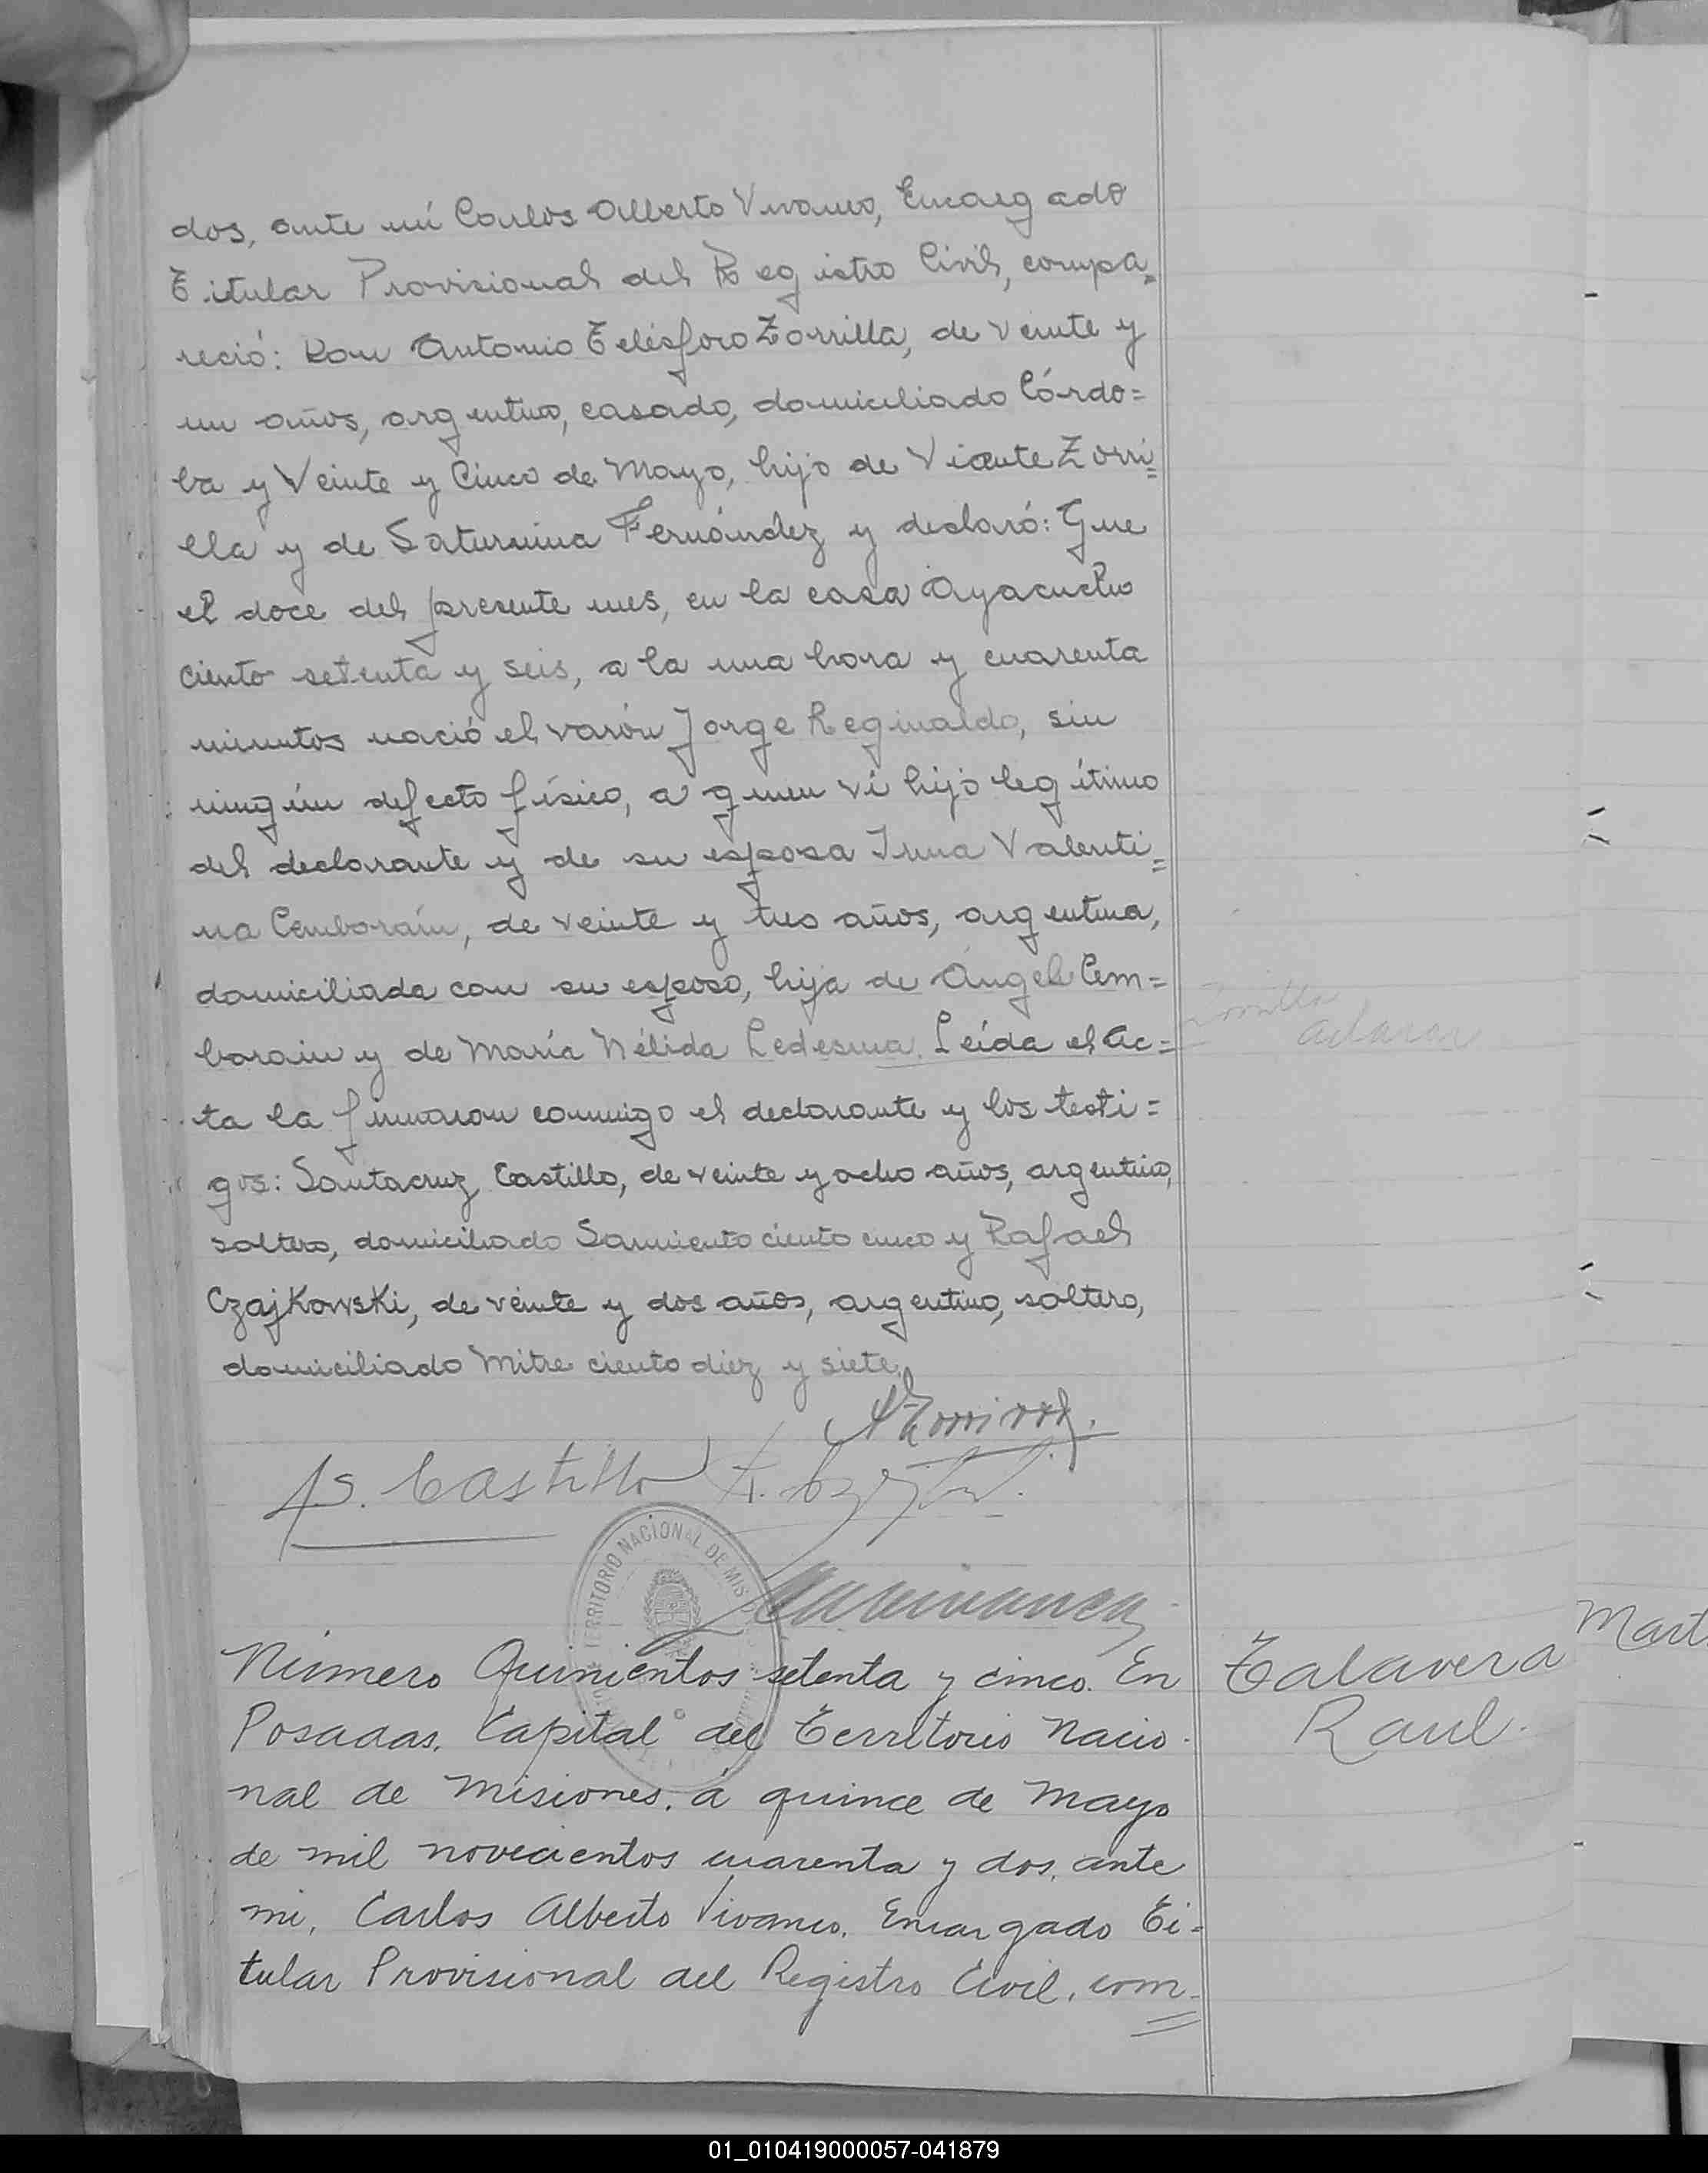 dos, ante mí Carlos Alberto Vivanco, Encargado
Titular Provisional del Registro Civil, compa=
reció: Don Antonio Telésforo Zorrilla, de veinte y
un años, argentino, casado, domiciliado Córdo=
ba y Veinte y Cinco de Mayo, hijo de Vicente Zorri=
lla y de Saturnina Fernández y declaró: Que
el doce del presente mes, en la casa Ayacucho
ciento setenta y seis, a la una hora y cuarenta
minutos nació el varón Jorge Reginaldo, sin
ningún defecto físico, a quien ví hijo legítimo
del declarante y de su esposa Irma Valenti=
na Cemboráin, de veinte y tres años, argentina,
domiciliada con su esposo, hija de Ángel Cem=
borain y de María Nélida Ledesma. Leída el Ac=
ta la firmaron conmigo el declarante y los testi=
gos: Santacruz Castillo, de veinte y ocho años, argentino,
soltero, domiciliado Sarmiento ciento cinco y Rafael
Czajkowski, de veinte y dos años, argentino, soltero,
domiciliado Mitre ciento diez y siete.
Zorrilla
aclarar
S. Castillo
TERRITORIO NACIONAL DE MIS
Número Quinientos setenta y cinco. En
Posadas, Capital del Territorio Nacio-
nal de Misiones, á quince de Mayo
de mil novecientos cuarenta y dos, ante
mi, Carlos Alberto Vivanco, Encargado Ti=
tular Provisional del Registro Civil, com=
Talavera
Raul.
Mart
01_010419000057-041879